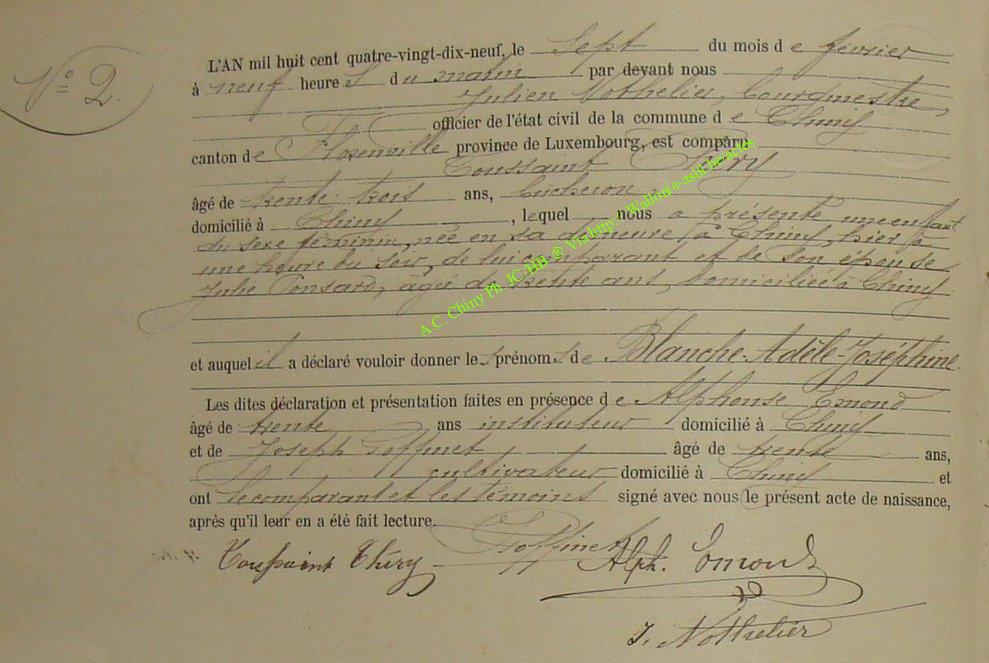 N° 2.
L'AN mil huit cent quatre-vingt-dix-neuf, le sept du mois de février
à neuf heures du matin par devant nous
Julien Nothelier, Bourgmestre,
officier de l'état civil de la commune de Chiny
canton de Florenville province de Luxembourg, est comparu
Toussaint Théry
âgé de trente trois ans, bucheron
domicilié à Chiny, lequel nous a présenté un enfant
du sexe féminin, née en sa demeure, à Chiny, hier à
une heure du soir, de lui comparant et de son épouse
Julie Ponsard, agée de trente ans, domiciliée à Chiny
et auquel il a déclaré vouloir donner les prénoms de Blanche-Adèle-Joséphine.
Les dites déclaration et présentation faites en présence de Alphonse Emond
âgé de trente ans instituteur domicilié à Chiny
et de Joseph Goffinet âgé de trente ans,
cultivateur, domicilié à Chiny et
ont le comparant et les témoins signé avec nous le présent acte de naissance,
après qu'il leur en a été fait lecture.
Goffinet
Toussaint Théry Alph. Emond
J. Nothelier
A.C. Chiny Ph JC.HB @ Viabup's Wallonia-asbl